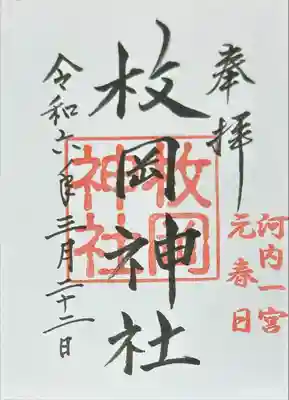 奉拝
河内一宮
元春日
枚岡神社
枚岡
神社
令和六年三月二十二日